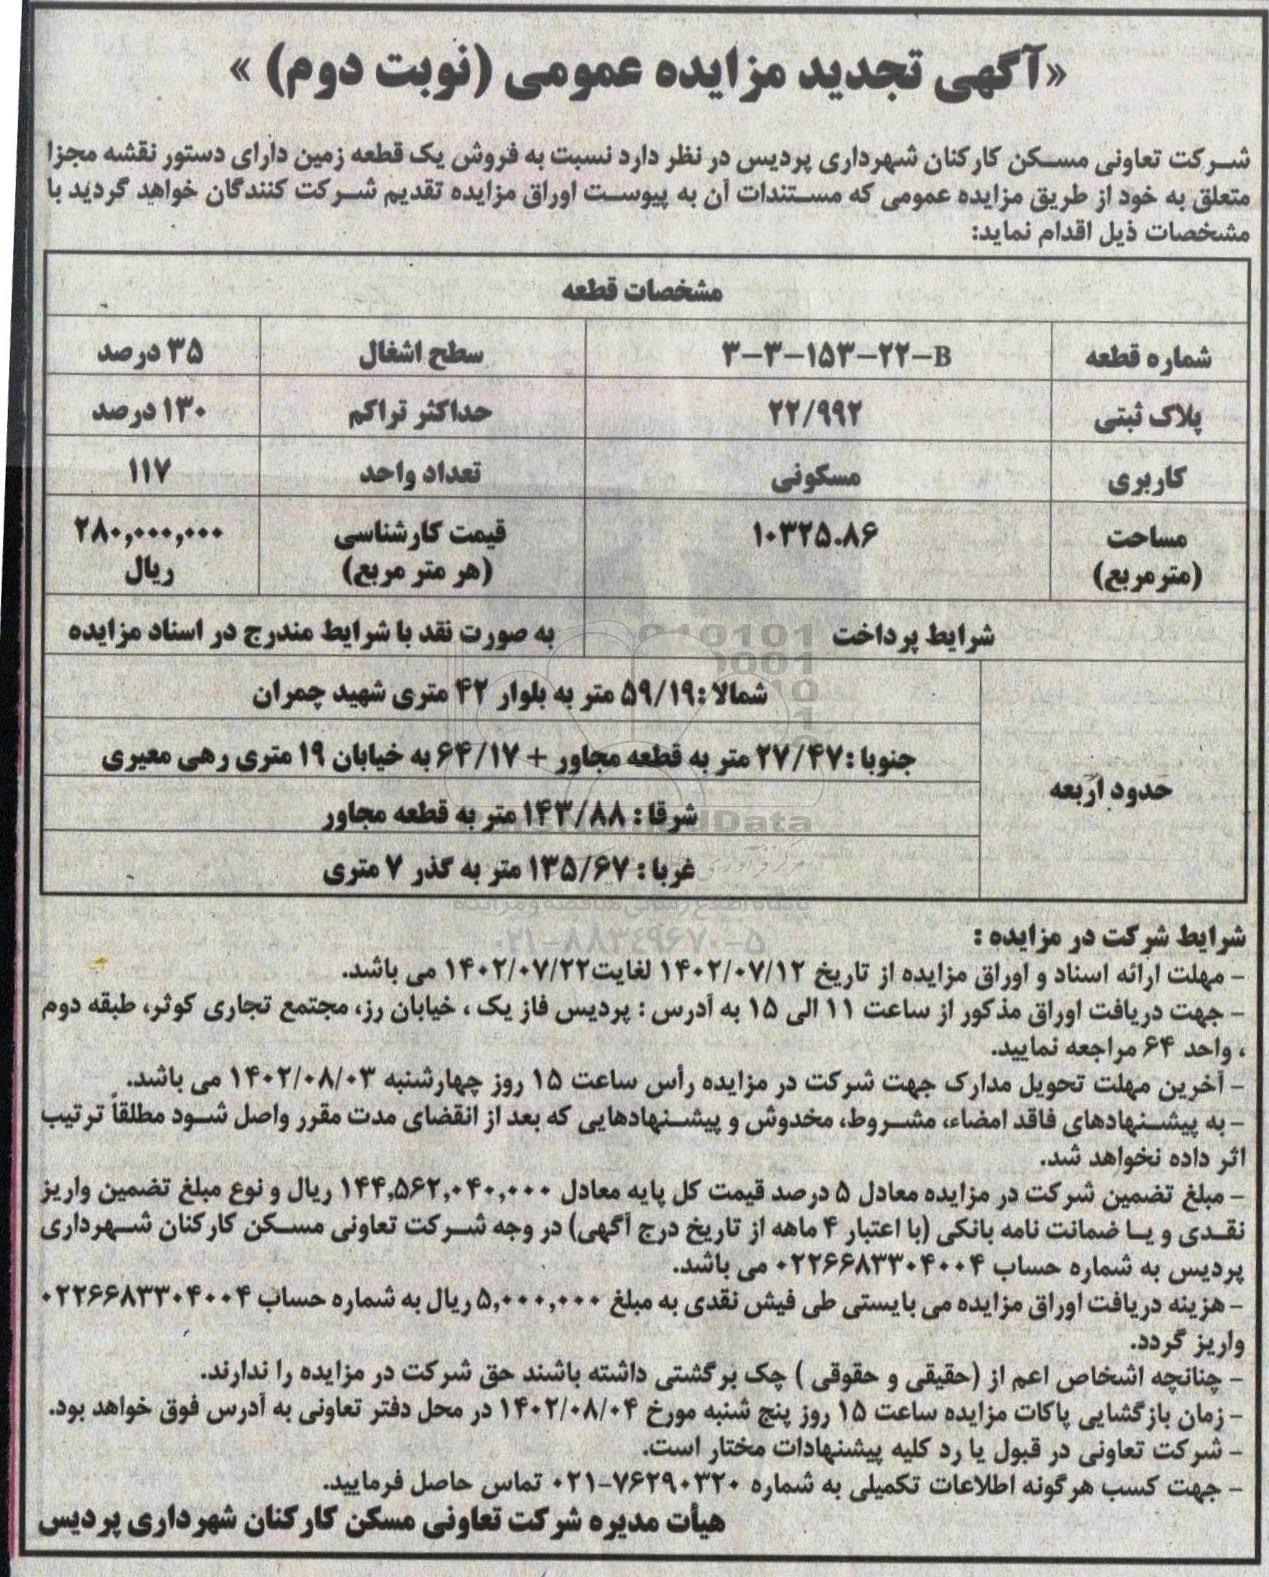 «آگهی تجدید مزایده عمومی (نوبت دوم) »
شرکت تعاونی مسکن کارکنان شهرداری پردیس در نظر دارد نسبت به فروش یک قطعه زمین دارای دستور نقشه مجزا
متعلق به خود از طریق مزایده عمومی که مستندات آن به پیوست اوراق مزایده تقدیم شرکت کنندگان خواهد گردید با
مشخصات ذیل اقدام نماید:
مشخصات قطعه
شماره قطعه ۳-۳-۱۵۳-۲۲-B سطح اشغال ۳۵ درصد
پلاک ثبتی ۲۲/۹۹۲ حداکثر تراکم ۱۳۰ درصد
کاربری مسکونی تعداد واحد ۱۱۷
مساحت ۱۰۳۲۵.۸۶ قیمت کارشناسی ۲۸۰,۰۰۰,۰۰۰
(مترمربع) (هر متر مربع) ریال
شرایط پرداخت به صورت نقد با شرایط مندرج در اسناد مزایده
حدود اربعه
شمالا :۵۹/۱۹ متر به بلوار ۴۲ متری شهید چمران
جنوبا :۲۷/۴۷ متر به قطعه مجاور + ۶۴/۱۷ به خیابان ۱۹ متری رهی معیری
شرقا : ۱۴۳/۸۸ متر به قطعه مجاور
غربا : ۱۳۵/۶۷ متر به گذر ۷ متری
پایگاه اطلاع رسانی مناقصه و مزایده
۰۲۱-۸۸۳۴۹۶۷۰-۵
شرایط شرکت در مزایده :
- مهلت ارائه اسناد و اوراق مزایده از تاریخ ۱۴۰۲/۰۷/۱۲ لغایت۱۴۰۲/۰۷/۲۲ می باشد.
- جهت دریافت اوراق مذکور از ساعت ۱۱ الی ۱۵ به آدرس : پردیس فاز یک ، خیابان رز، مجتمع تجاری کوثر، طبقه دوم
، واحد ۶۴ مراجعه نمایید.
- آخرین مهلت تحویل مدارک جهت شرکت در مزایده رأس ساعت ۱۵ روز چهارشنبه ۱۴۰۲/۰۸/۰۳ می باشد.
- به پیشنهادهای فاقد امضاء، مشروط، مخدوش و پیشنهادهایی که بعد از انقضای مدت مقرر واصل شود مطلقاً ترتیب
اثر داده نخواهد شد.
- مبلغ تضمین شرکت در مزایده معادل ۵ درصد قیمت کل پایه معادل ۱۴۴,۵۶۲,۰۴۰,۰۰۰ ریال و نوع مبلغ تضمین واریز
نقدی و یا ضمانت نامه بانکی (با اعتبار ۴ ماهه از تاریخ درج آگهی) در وجه شرکت تعاونی مسکن کارکنان شهرداری
پردیس به شماره حساب ۰۲۲۶۶۸۳۳۰۴۰۰۴ می باشد.
- هزینه دریافت اوراق مزایده می بایستی طی فیش نقدی به مبلغ ۵,۰۰۰,۰۰۰ ریال به شماره حساب ۰۲۲۶۶۸۳۳۰۴۰۰۴
واریز گردد.
- چنانچه اشخاص اعم از (حقیقی و حقوقی ) چک برگشتی داشته باشند حق شرکت در مزایده را ندارند.
- زمان بازگشایی پاکات مزایده ساعت ۱۵ روز پنج شنبه مورخ ۱۴۰۲/۰۸/۰۴ در محل دفتر تعاونی به آدرس فوق خواهد بود.
- شرکت تعاونی در قبول یا رد کلیه پیشنهادات مختار است.
- جهت کسب هرگونه اطلاعات تکمیلی به شماره ۷۶۲۹۰۳۲۰-۰۲۱ تماس حاصل فرمایید.
هیأت مدیره شرکت تعاونی مسکن کارکنان شهرداری پردیس